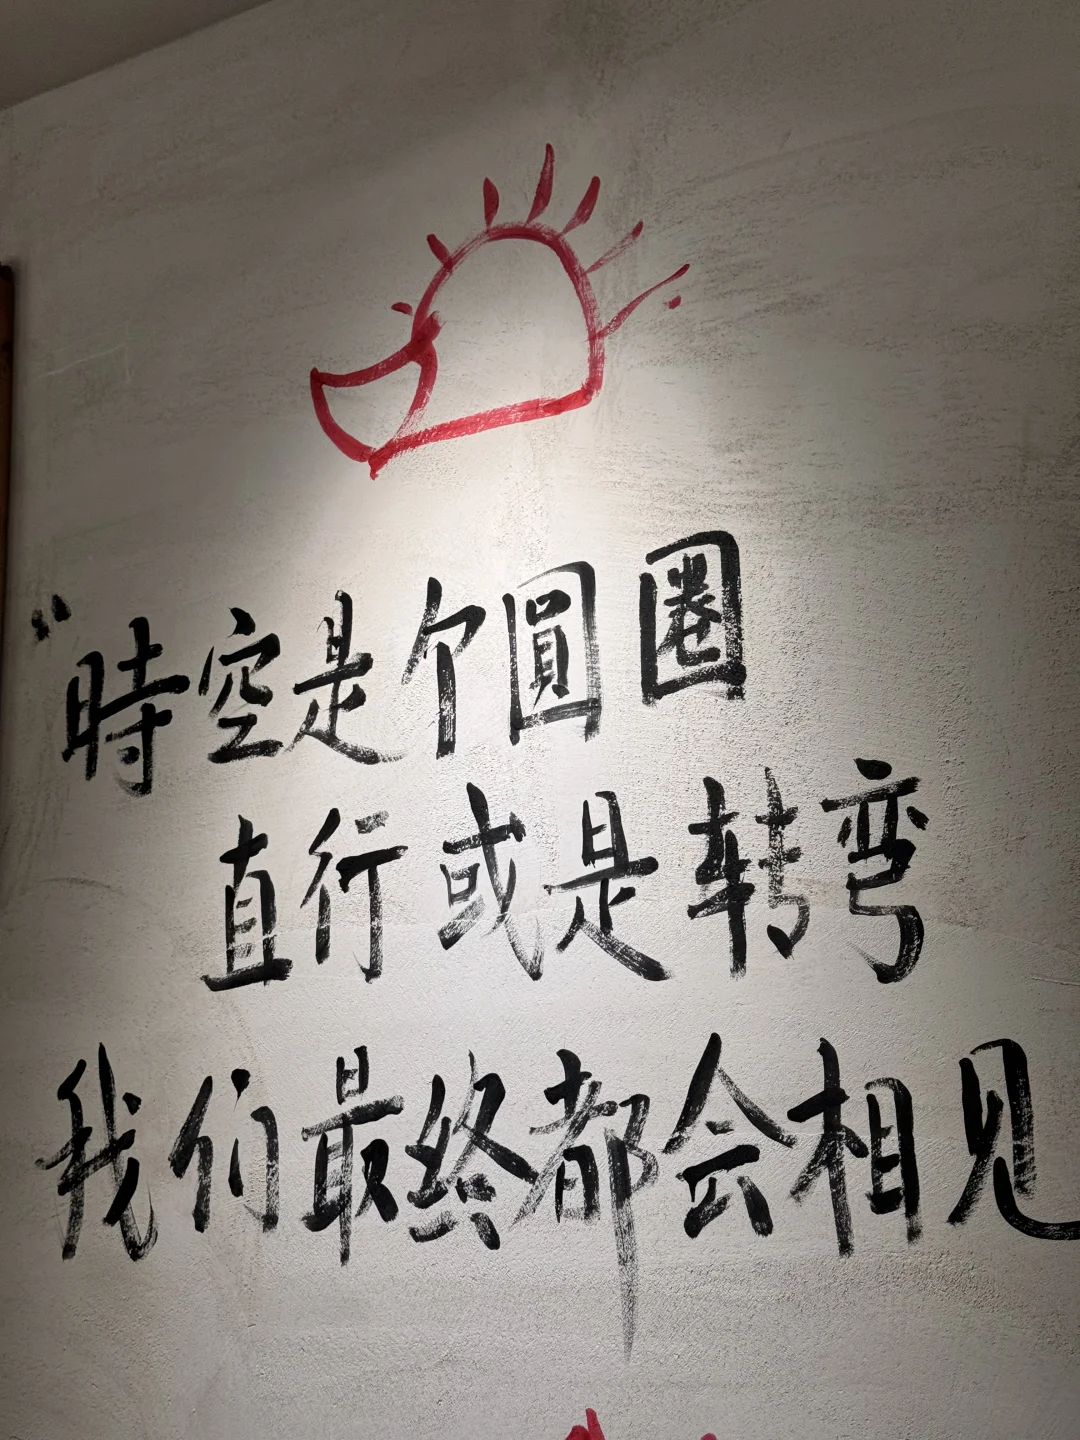 “時空是个圓圈
直行或是转弯
我们最终都会相见